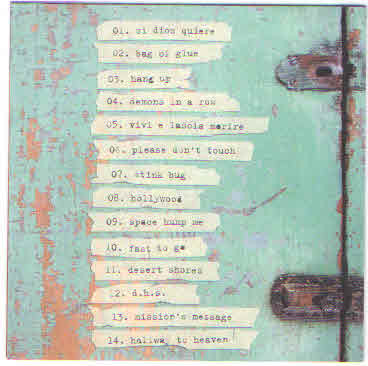 01. si dios quiere
02. bag of glue
03. hang up
04. demons in a row
05. vivi e lascia morire
06. please don't touch
07. stink bug
08. hollywood
09. space hump me
10. fast to go
11. desert shores
12. d.h.s.
13. mission's message
14. to heaven